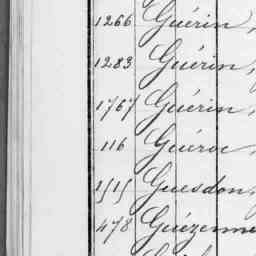 1266 Guérin,
1283 Guérin,
1767 Guérin,
116 Guéroc,
1515 Guesdon,
478 Guézenne